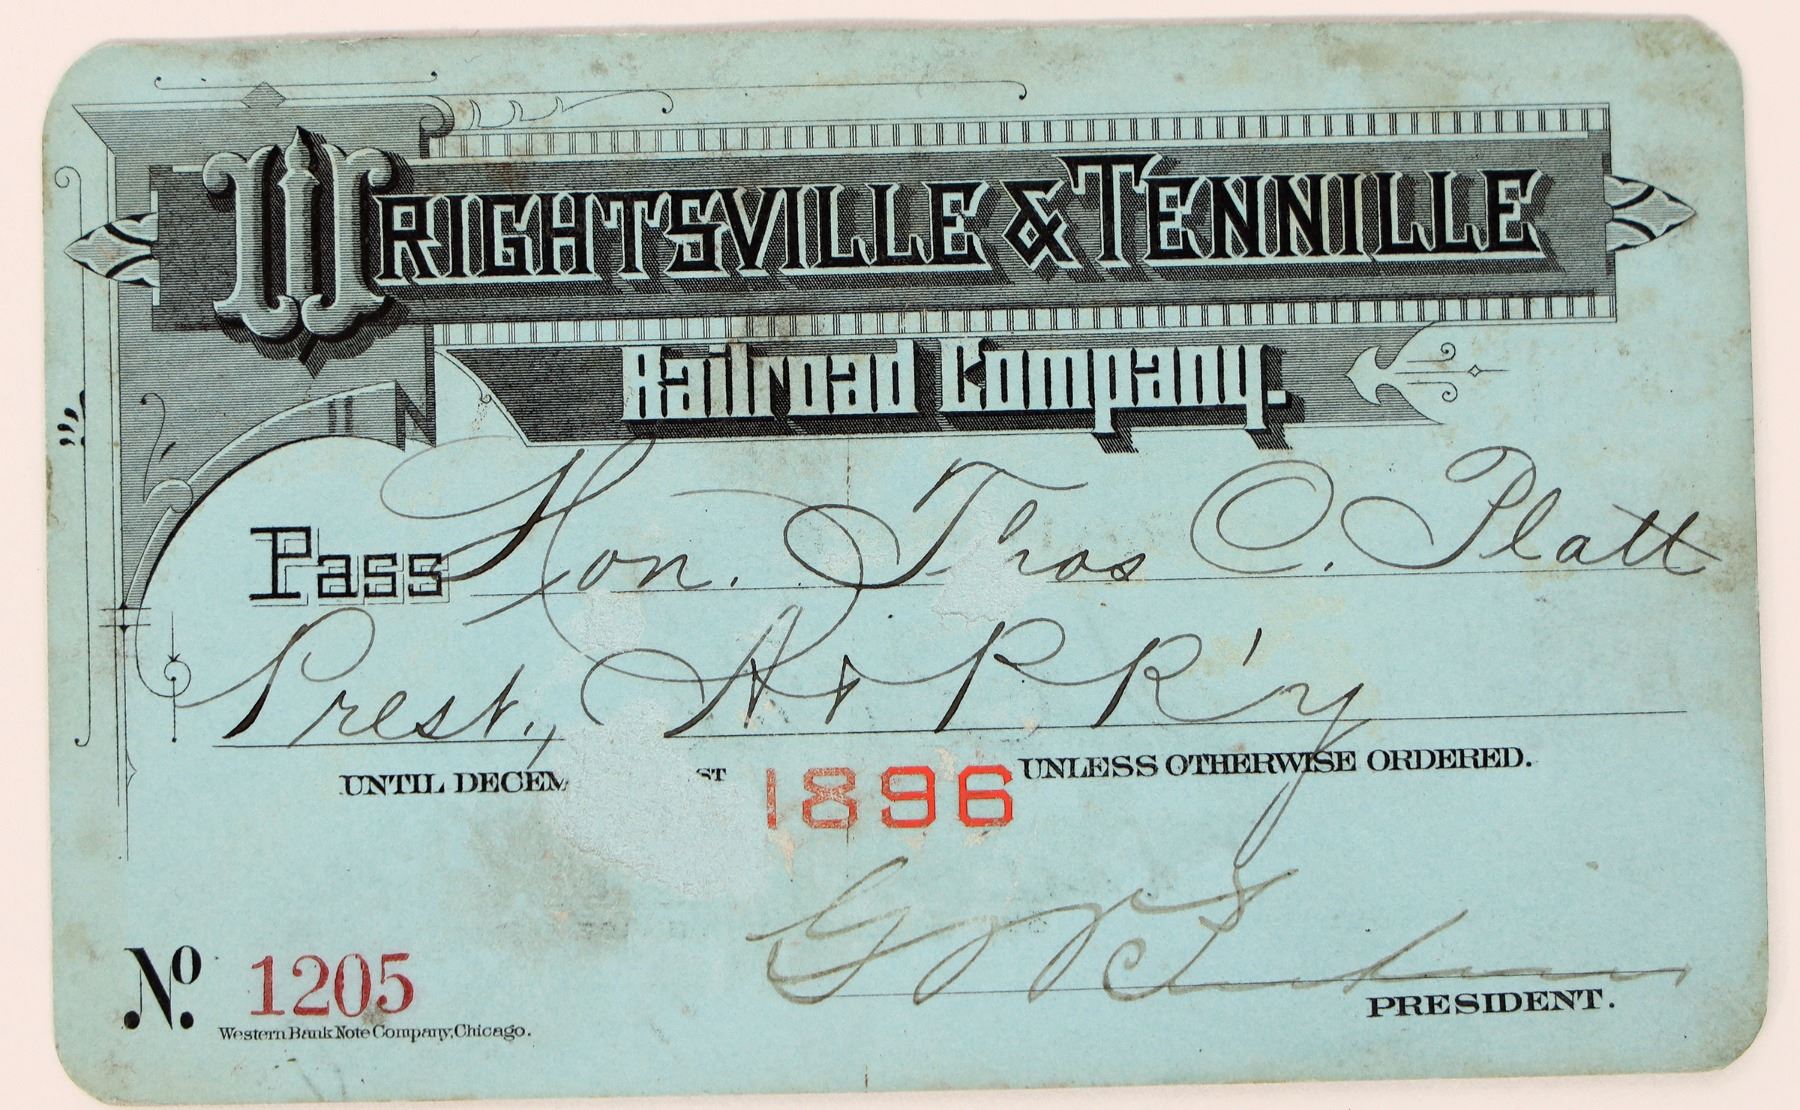 WRIGHTSVILLE & TENNILLE
Railroad Company.
Pass Hon. Thos C. Platt
Prest., A & P R R'y
UNTIL DECEM ST 1896 UNLESS OTHERWISE ORDERED.
PRESIDENT.
No. 1205
Western Bank Note Company, Chicago.